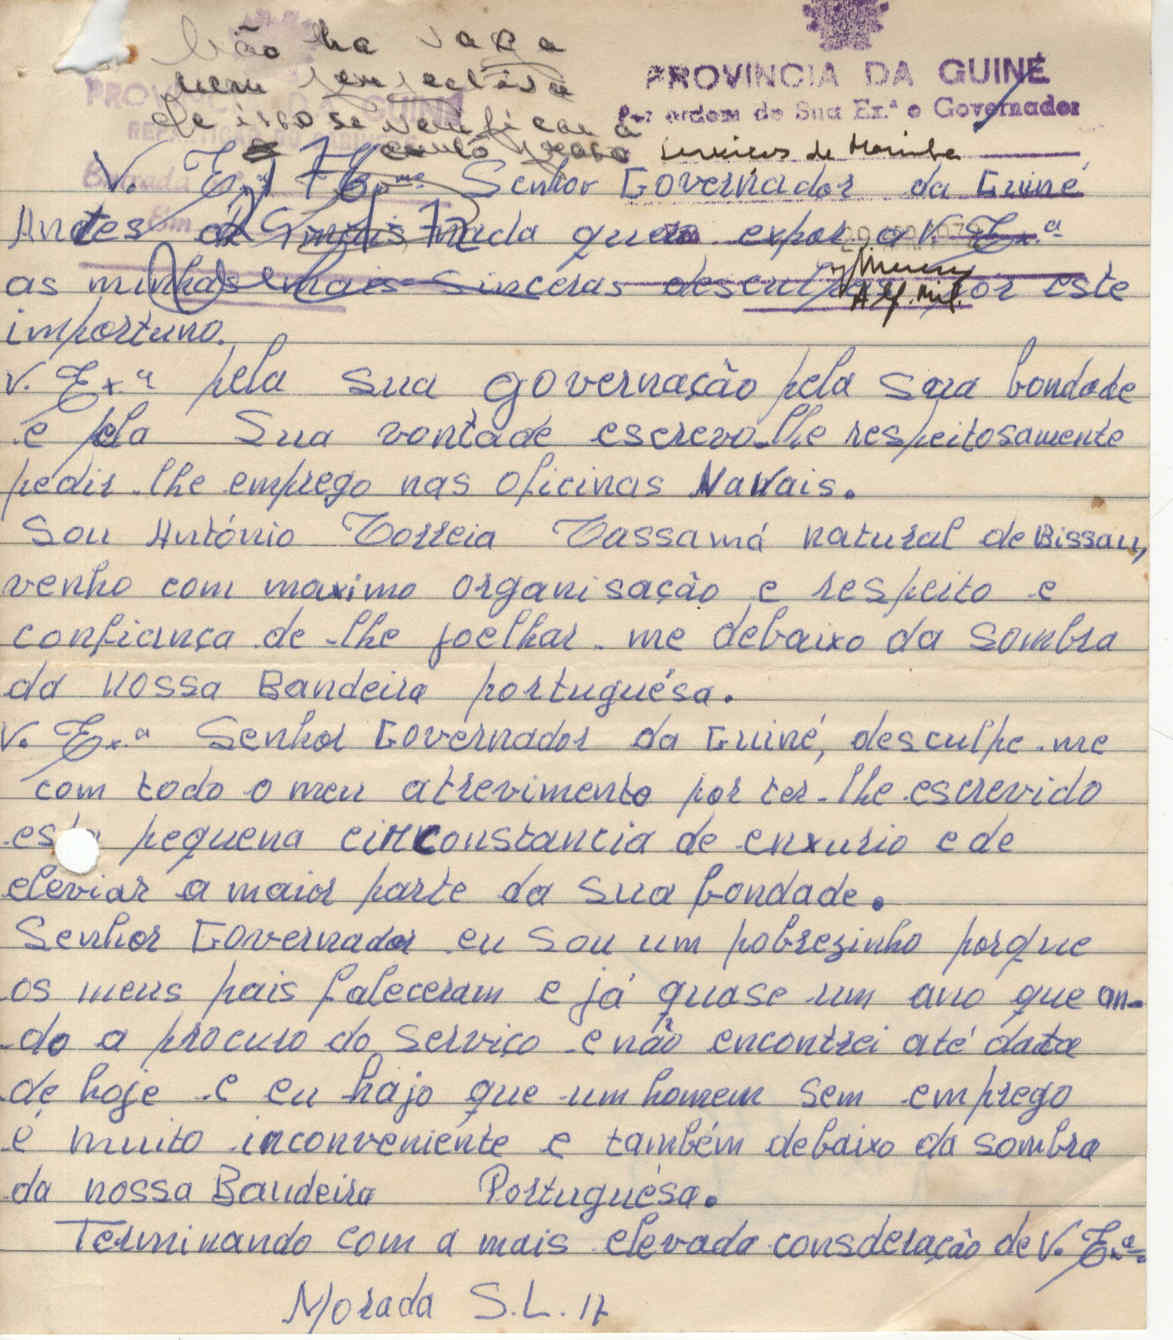 Não ha vaga
nem
de isso se verificar a
curto prazo
PROVINCIA DA GUINÉ
PROVINCIA DA GUINÉ
Por ordem de Sua Ex.ª o Governador
Serviços de Marinha
Entrada
Em
V. Ex.ª Senhor Governador da Guiné
Andtes de mais nada quero expor a V. Ex.ª
as minhas mais sincéras desculpas por este
Alf. Mil.
importuno.
V. Ex.ª pela sua governação pela sua bondade
e pela Sua vontade escrevo-lhe respeitosamente
pedir-lhe emprego nas oficinas Navais.
Sou António Correia Cassamá natural de Bissau,
venho com maximo organisação e respeito e
confiança de-lhe joelhar-me debaixo da sombra
da nossa Bandeira portuguésa.
V. Ex.ª Senhor Governador da Guiné, desculpe-me
com todo o meu atrevimento por ter-lhe escrevido
esta pequena circonstancia de enxurio e de
eleviar a maior parte da sua bondade.
Senhor Governador eu sou um pobrezinho porque
os meus pais faleceram e já quase um ano que an-
do a procuro do serviço e não encontrei até data
de hoje e eu hajo que um homem sem emprego
é muito inconveniente e também debaixo da sombra
da nossa Bandeira Portuguésa.
Terminando com a mais elevada consderação de V. Ex.ª
Morada S.L.